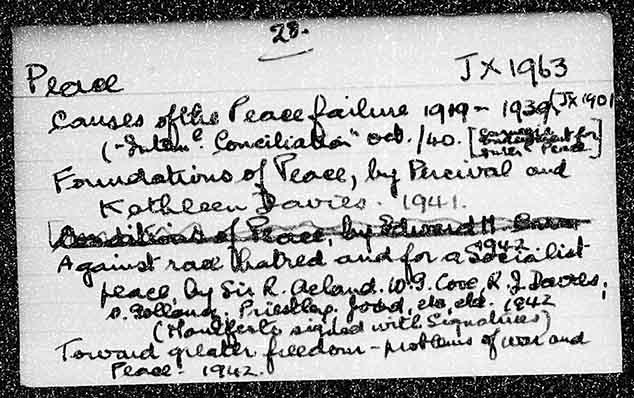 28.
Peace JX1963
Causes of the Peace failure 1919-1939 (JX1901
("Intern. Conciliation" Oct. /40. [Carnegie Endowment for Intern. Peace]
Foundations of Peace, by Percival and
Kathleen Davies. 1941.
Conditions of Peace, by Edward H. Carr
1942
Against race hatred and for a Socialist
peace, by Sir R. Acland. W.G. Cove, R.J. Davies,
V. Gollancz, Priestley, Joad, etc, etc. 1942
(Manifesto signed with Signatures)
Toward greater freedom - problems of war and
Peace. 1942.